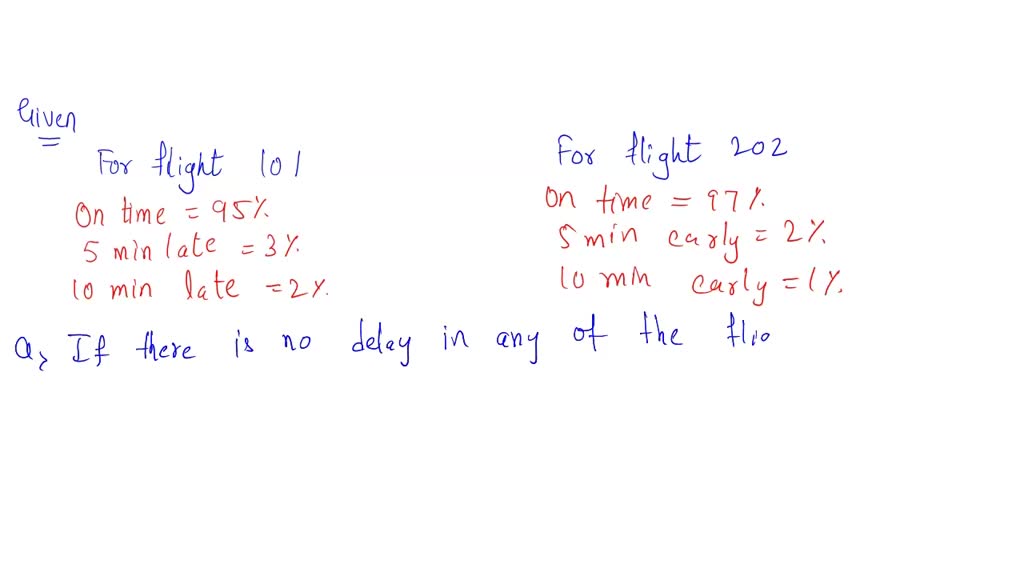 Given
For flight 101
On time = 95%.
5 min late = 3%.
10 min late = 2%.
For flight 202
On time = 97%.
5 min early = 2%.
10 min early = 1%.
a, If there is no delay in any of the flio